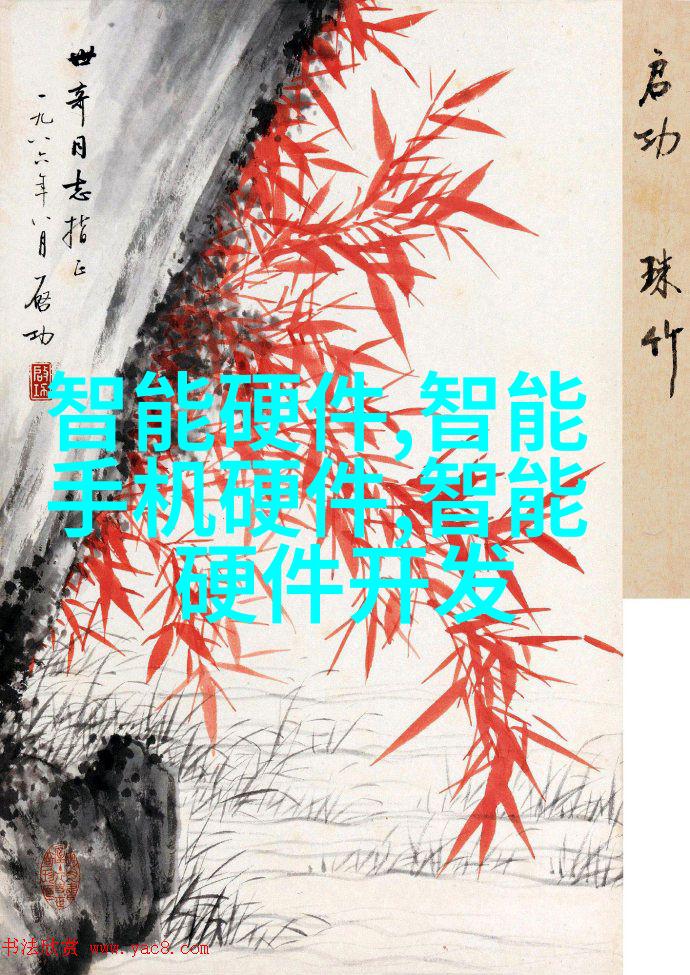 启功 珠竹
世奇同志指正
一九八六年八月 启功
智能硬件,智能
手机硬件,智能
硬件开发
书法欣赏 www.yac8.com